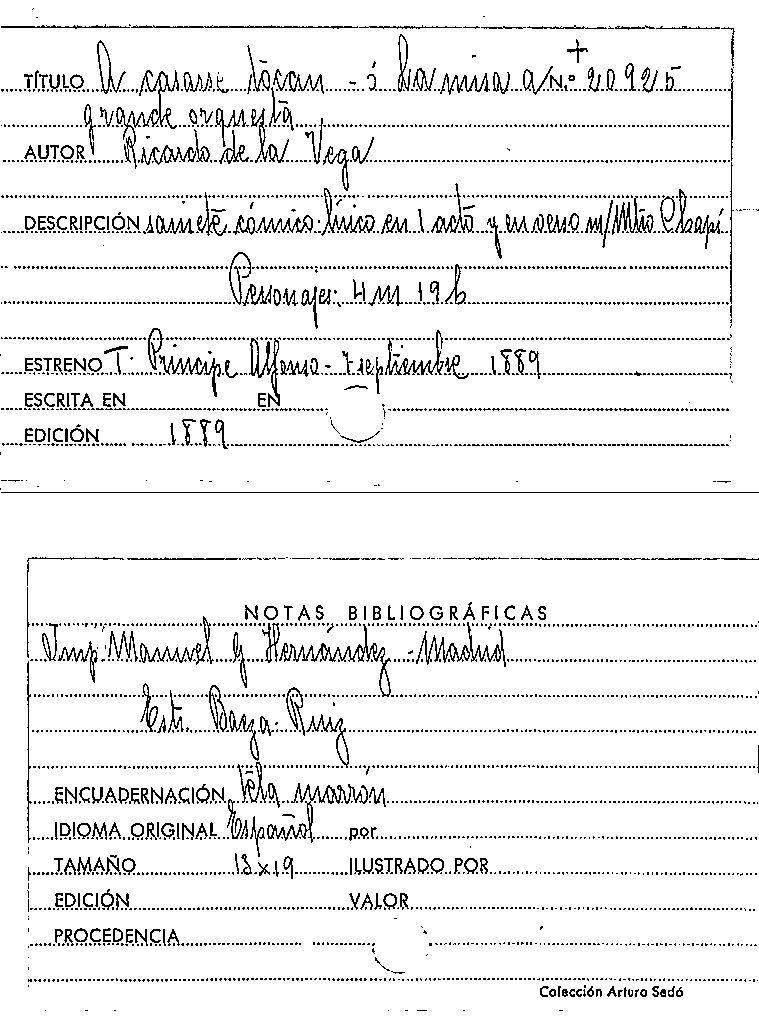 TÍTULO A casarse tocan - ó La misa a N.º 20925
grande orquesta
AUTOR Ricardo de la Vega
DESCRIPCIÓN sainete cómico-lírico en 1 acto y en verso m/ Mtro Chapí
Personajes: 4 m 19 h
ESTRENO T. Principe Alfonso - 7 septiembre 1889
ESCRITA EN EN
EDICIÓN 1889
NOTAS BIBLIOGRÁFICAS
Imp. Manuel G Hernández - Madrid
Estr. Baza-Ruiz
ENCUADERNACIÓN tela marrón
IDIOMA ORIGINAL Español por
TAMAÑO 13x19 ILUSTRADO POR
EDICIÓN VALOR
PROCEDENCIA
Colección Arturo Sedó